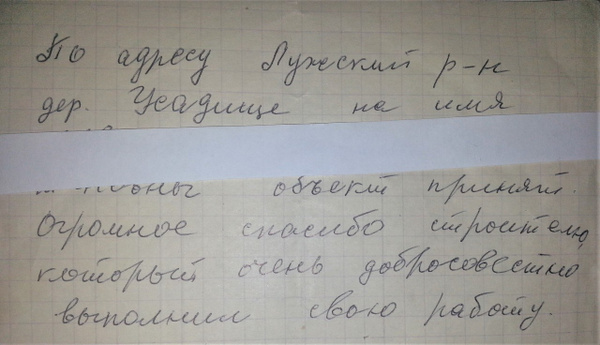 По адресу Лужский р-н
дер. Усадище на имя
объект принят.
Огромное спасибо строителю,
который очень добросовестно
выполнил свою работу.